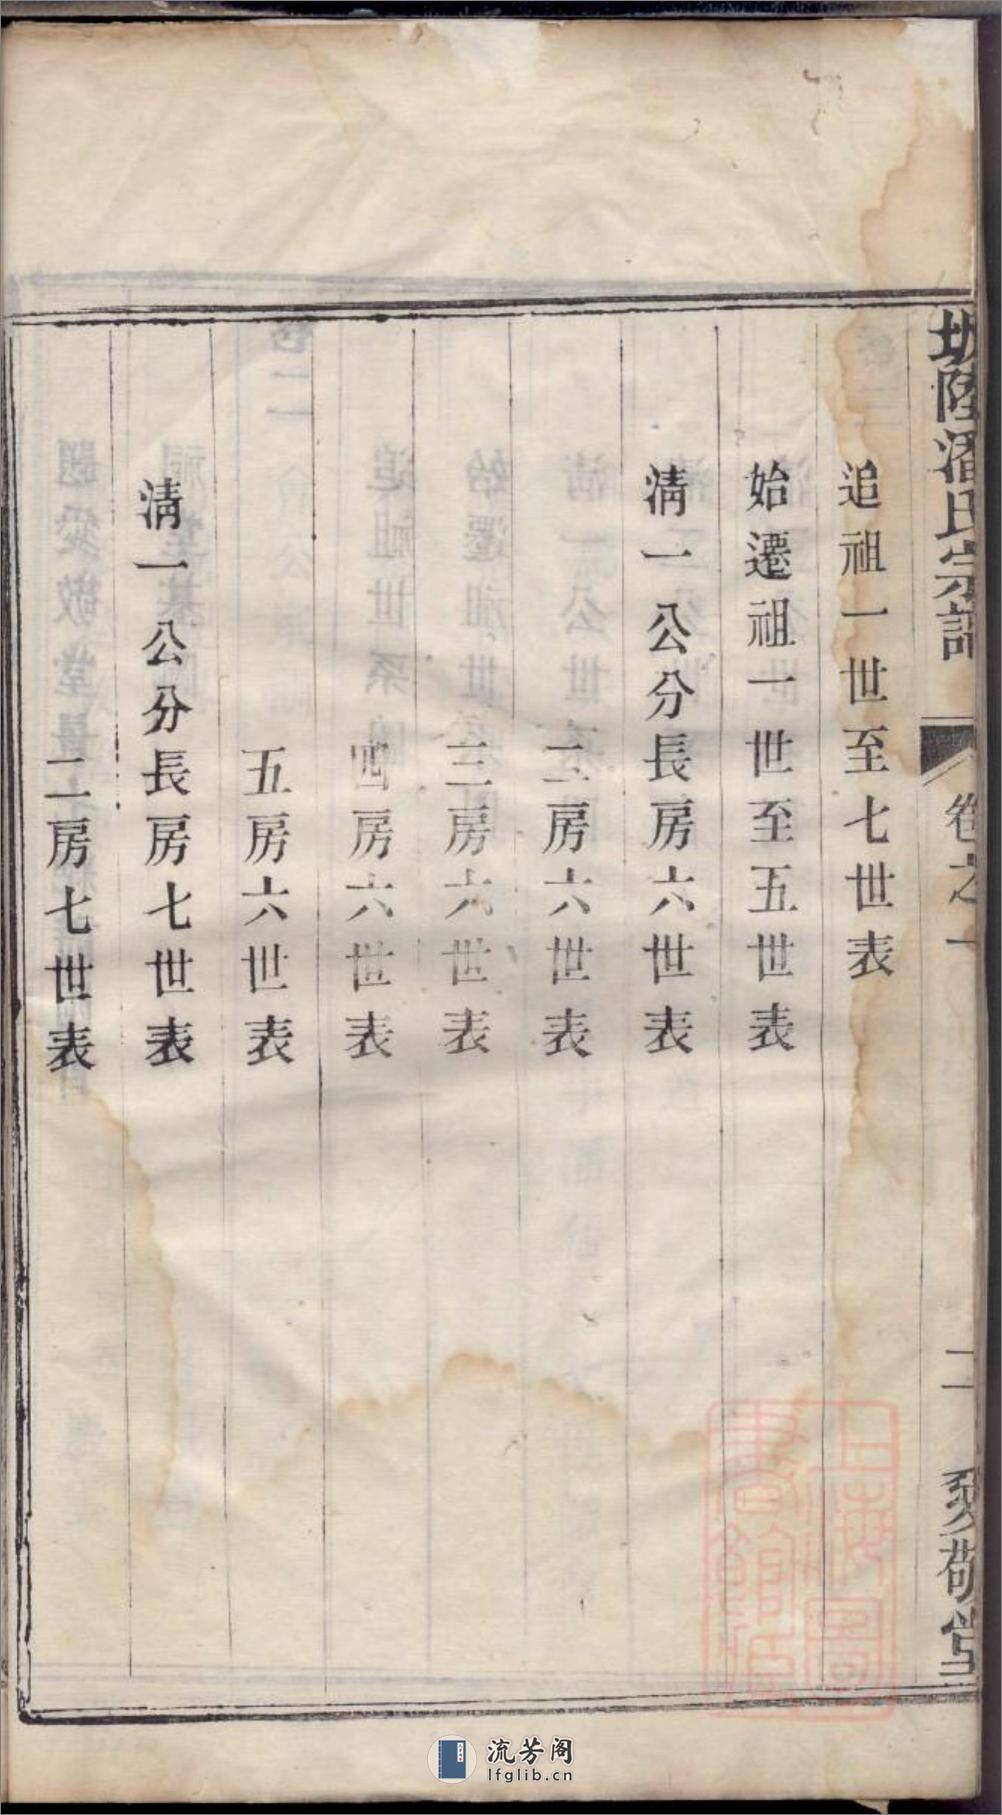 追祖一世至七世表
始遷祖一世至五世表
淸一公分長房六世表
二房六世表
三房六世表
四房六世表
五房六世表
淸一公分長房七世表
二房七世表
潘氏宗譜
卷之一
二
愛敬堂
上海圖書館藏
流芳阁
lfglib.cn